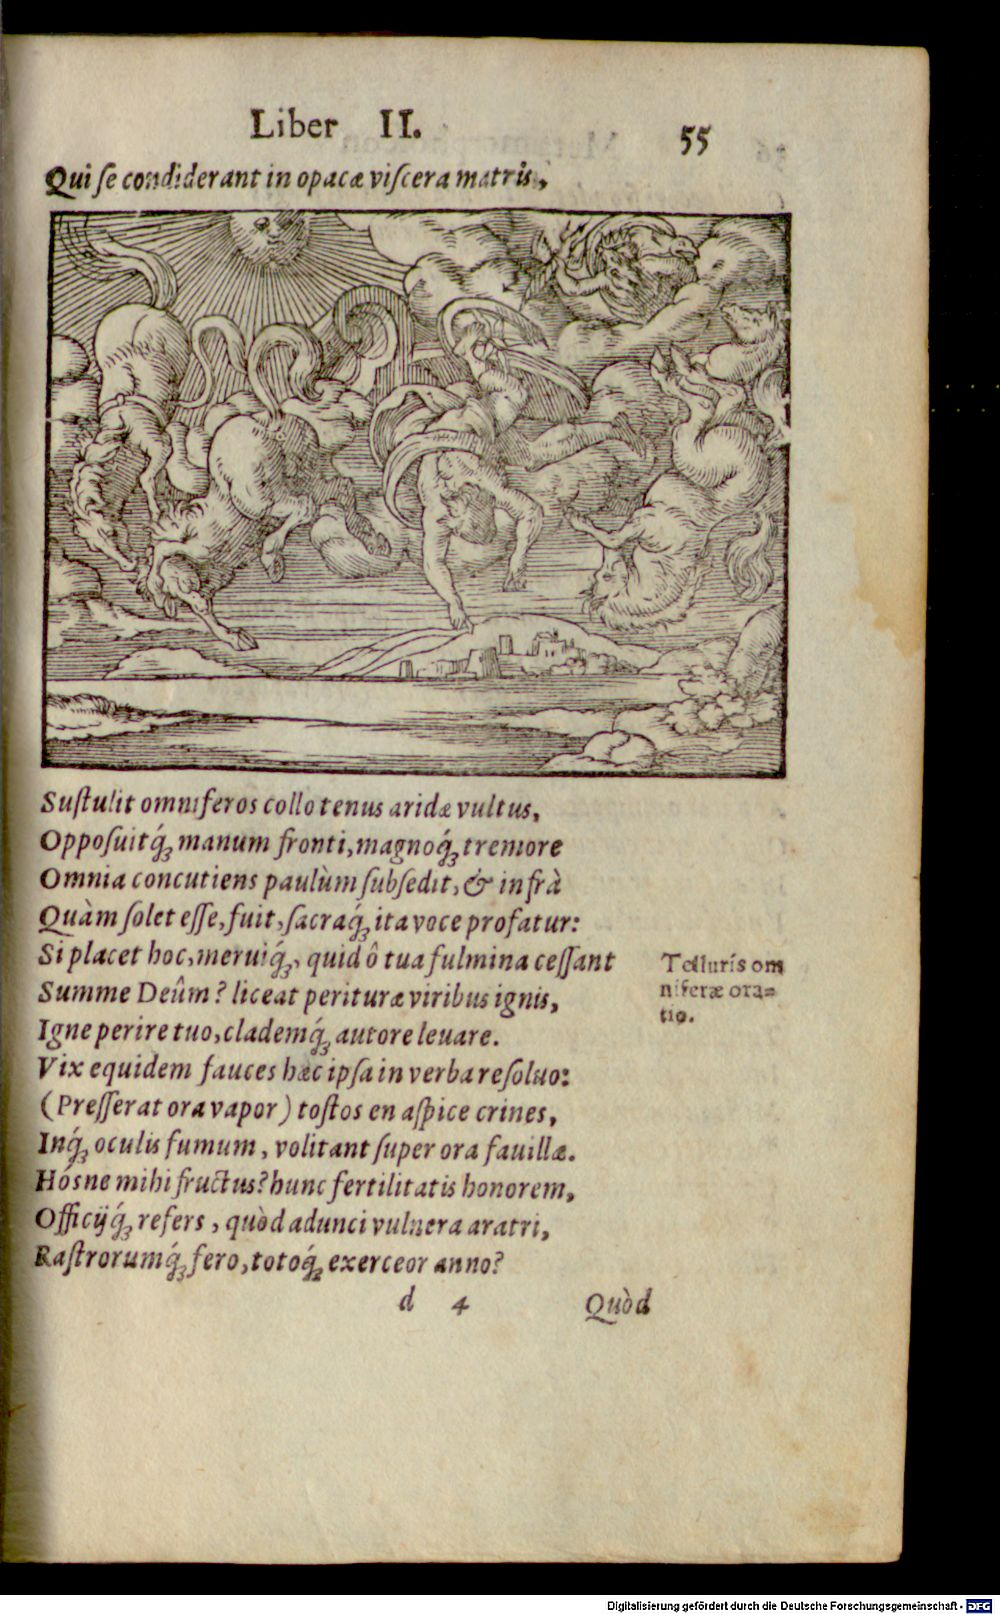 Liber II. 55
Qui se condiderant in opacæ viscera matris,
Sustulit omniferos collo tenus aridæ vultus,
Opposuitq́ꝫ manum fronti, magnoq́ꝫ tremore
Omnia concutiens paulùm subsedit, & infrà
Quàm solet esse, fuit, sacraq́ꝫ ita voce profatur:
Si placet hoc, meruiq́ꝫ, quid ô tua fulmina cessant
Summe Deûm? liceat perituræ viribus ignis,
Igne perire tuo, clademq́ꝫ autore leuare.
Vix equidem fauces hæc ipsa in verba resoluo:
(Presserat ora vapor) tostos en aspice crines,
Inq́ꝫ oculis fumum, volitant super ora fauillæ.
Hósne mihi fructus? hunc fertilitatis honorem,
Officijq́ꝫ refers, quòd adunci vulnera aratri,
Rastrorumq́ꝫ fero, totoq́ꝫ exerceor anno?
Telluris om
niferæ ora=
tio.
d 4 Quòd
Digitalisierung gefördert durch die Deutsche Forschungsgemeinschaft - DFG